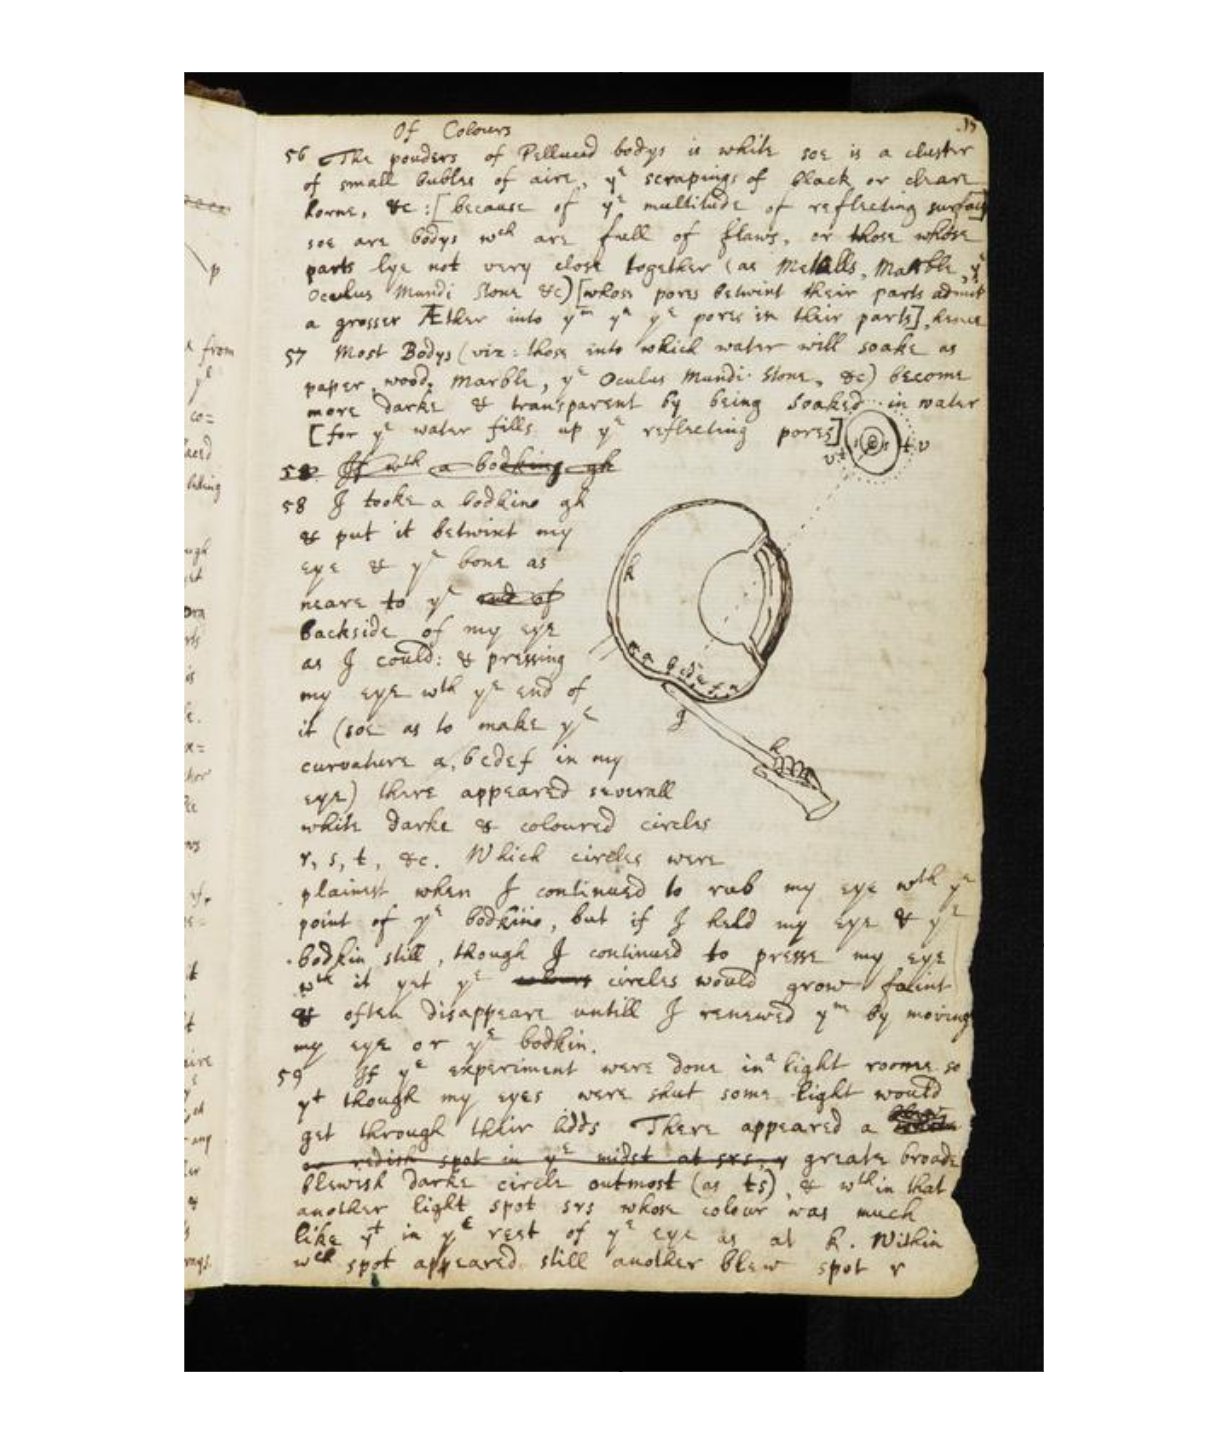 Of Colours
15
56 The pouders of Pellucid bodys is white soe is a cluster
of small bubles of aire, yᵉ scrapings of black or cleare
horne, &c: [because of yᵉ multitude of reflecting surfaces]
soe are bodys wᶜʰ are full of flaws, or those whose
parts lye not very close together (as Metalls, Marble, yᵉ
Oculus Mundi Stone &c) [whose pores betwixt their parts admit
a grosser Æther into yᵐ yⁿ yᵉ pores in their parts], hence
57 Most Bodys (viz: those into which water will soake as
paper, wood, marble, yᵉ Oculus Mundi Stone, &c) become
more darke & transparent by being soaked in water
[for yᵉ water fills up yᵉ reflecting pores]
58 If wᵗʰ a bodking gh
58 I tooke a bodkine gh
& put it betwixt my
eye & yᵉ bone as
neare to yᵉ end of
backside of my eye
as I could: & pressing
my eye wᵗʰ yᵉ end of
it (soe as to make yᵉ
curvature a, bcdef in my
eye) there appeared severall
white darke & coloured circles
r, s, t, &c. Which circles were
plainest when I continued to rub my eye wᵗʰ yᵉ
point of yᵉ bodkine, but if I held my eye & yᵉ
bodkin still, though I continued to presse my eye
wᵗʰ it yet yᵉ colours circles would grow faint
& often disappeare untill I renewed yᵐ by moving
my eye or yᵉ bodkin.
59 If yᵉ experiment were done in a light roome so
yᵗ though my eyes were shut some light would
get through their lidds There appeared a
or redish spot in yᵉ midst at srs, & greate broade
blewish darke circle outmost (as ts), & wᵗʰin that
another light spot srs whose colour was much
like yᵗ in yᵉ rest of yᵉ eye as at k. Within
wᶜʰ spot appeared still another blew spot r